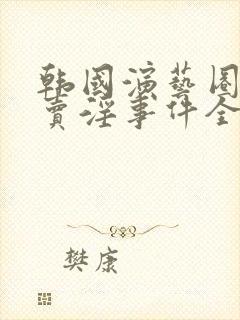 韩国演藝圈
賣淫事件全
樊康